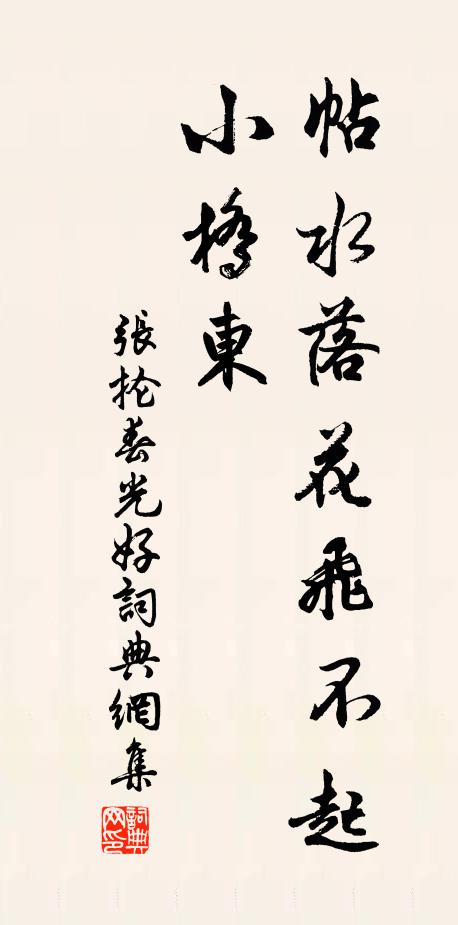 帖水落花飛不起
小橋東
張抡春光好詞典網集
詞典网印